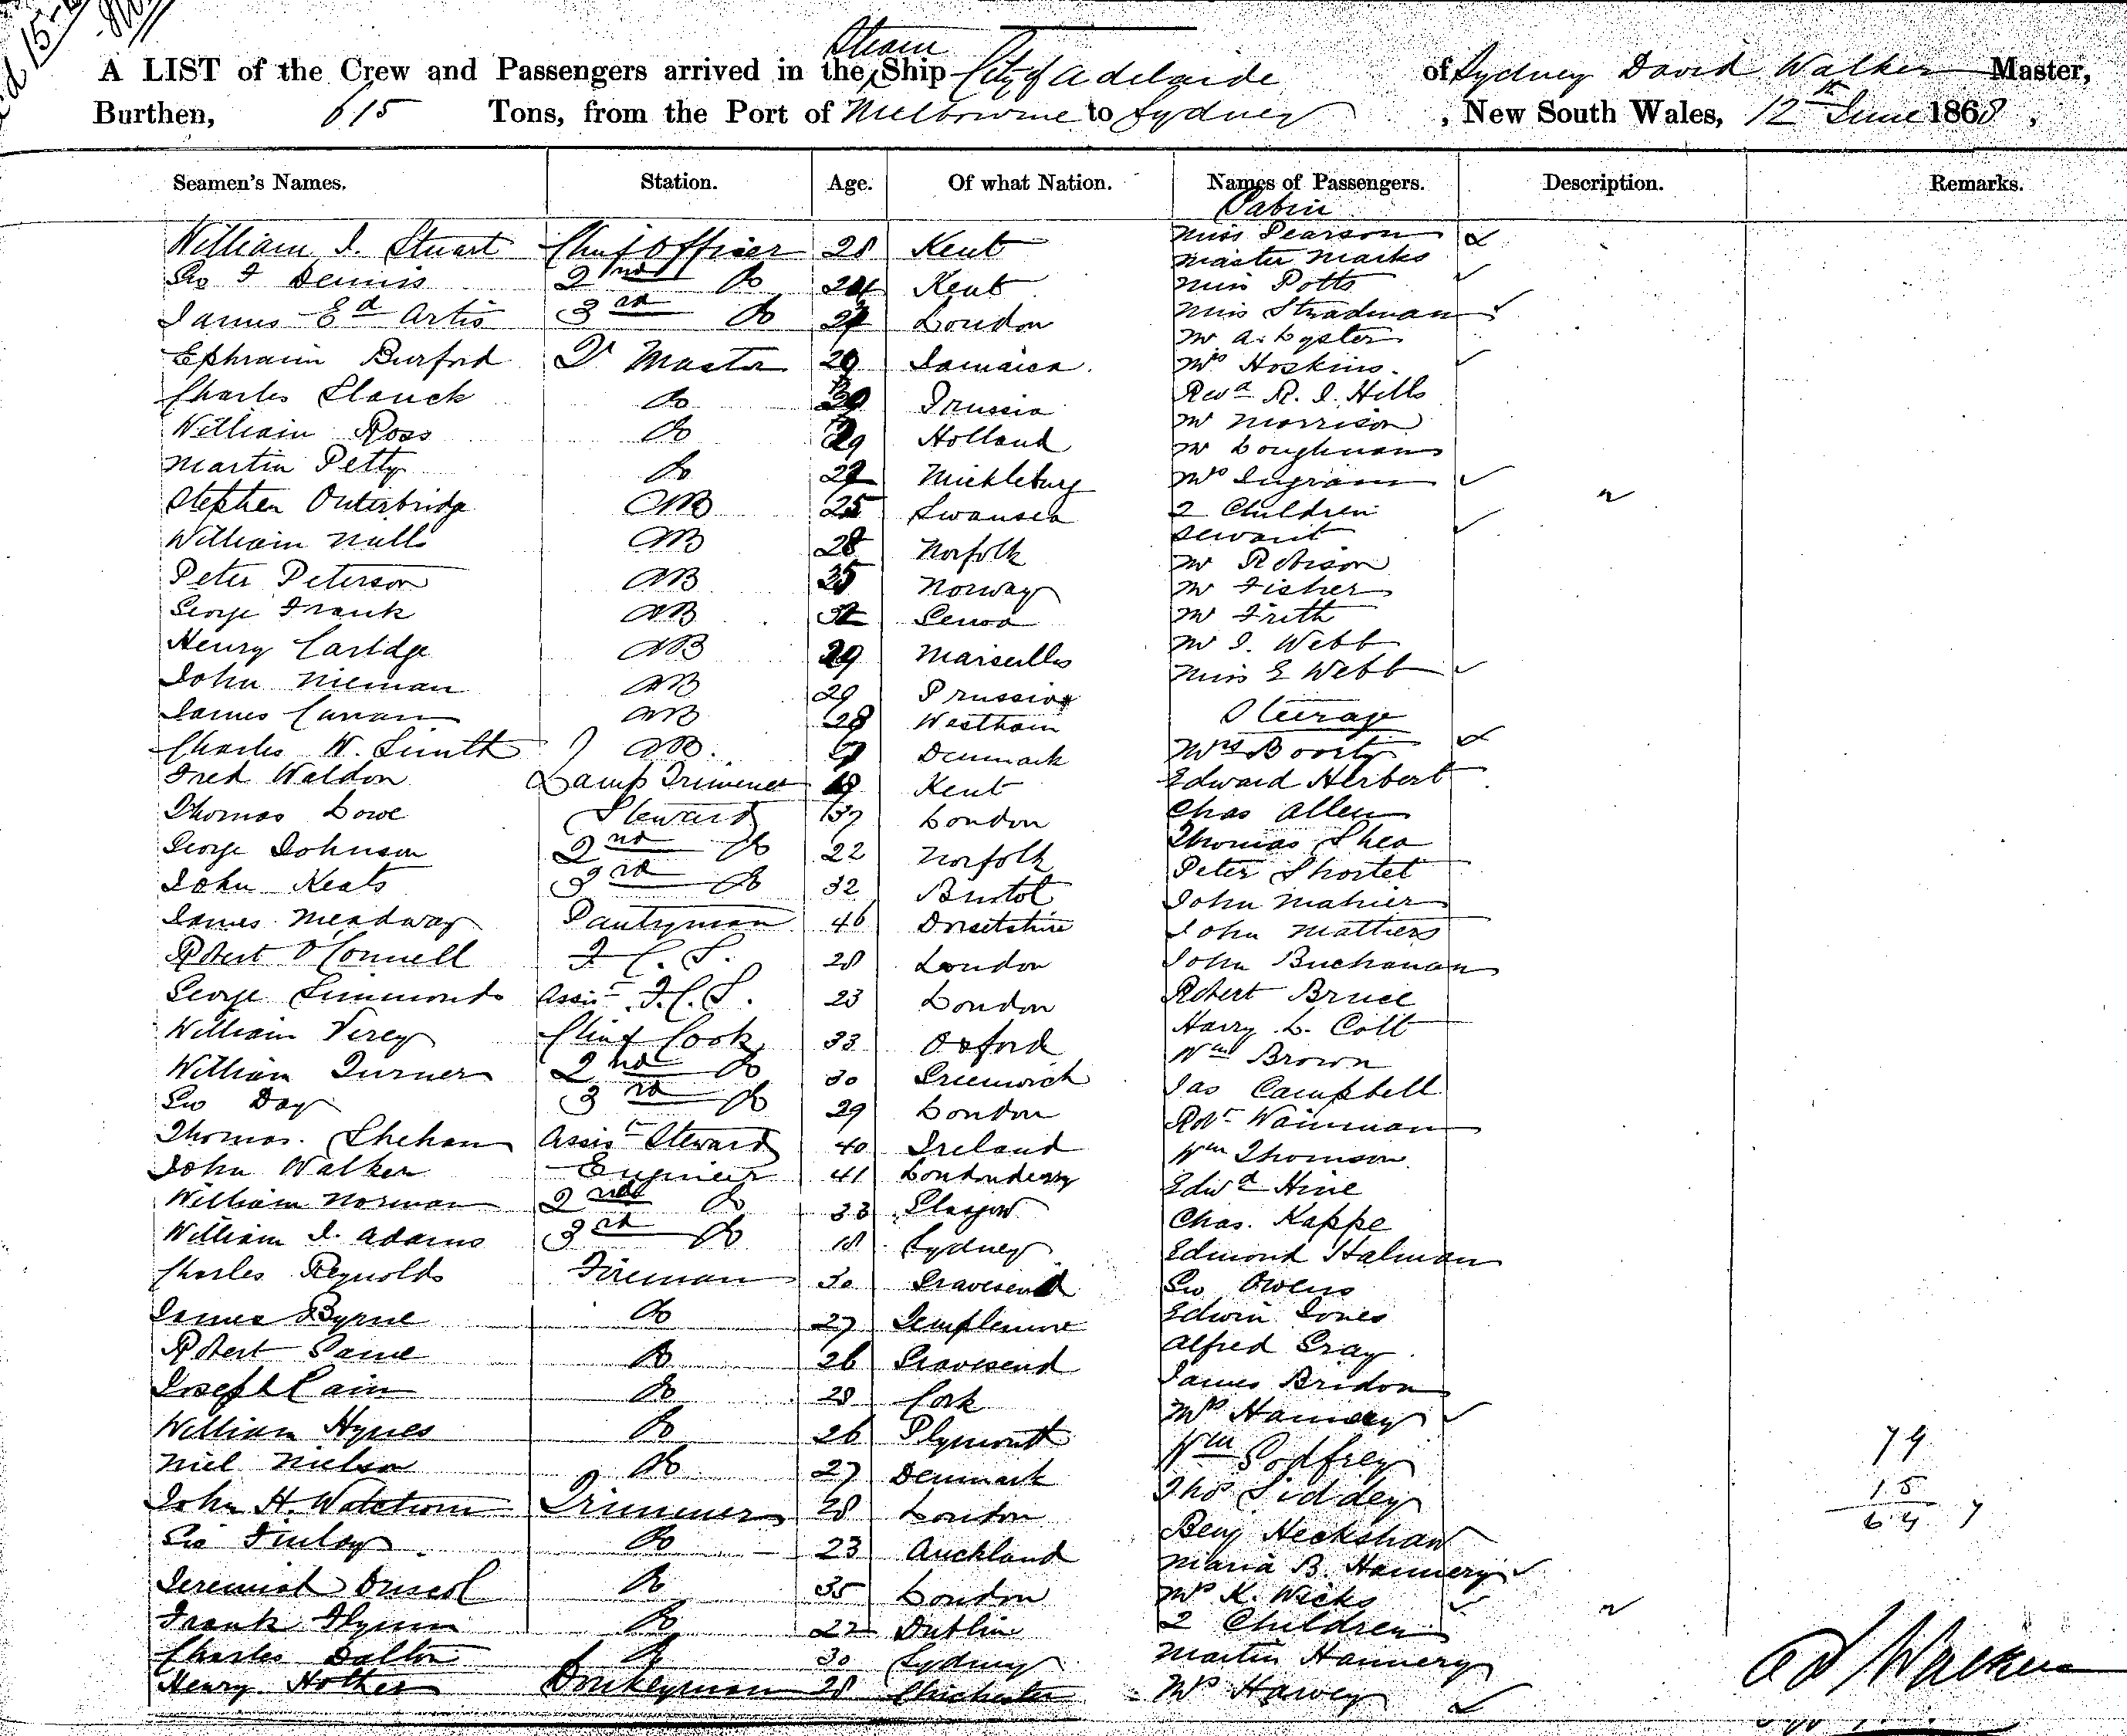 Steam
A LIST of the Crew and Passengers arrived in the Ship City of Adelaide of Sydney David Walker Master,
Burthen, 615 Tons, from the Port of Melbourne to Sydney, New South Wales, 12th June 1868,
Seamen's Names. Station. Age. Of what Nation. Names of Passengers. Description. Remarks.
Cabin
William J. Stuart Chief Officer 28 Kent Miss Pearson
Master Marks
Geo F Dennis 2nd Do 24 Kent Miss Potts
James Ed Artis 3rd Do London Miss Stradman
Mr A. Lyster
Ephraim Burford Qr Master 29 Jamaica Mrs Hoskins
Charles Do Prussia Revd R. J. Hills
William Ross Do 29 Holland Mr Morrison
Mr Loughnan
Martin Petty Do Mickleburg Mrs Ingram
Stephen Outerbridge AB 25 Swansea 2 Children
servant
William AB 28 Norfolk Mr Robison
Peter Peterson AB 35 Norway Mr Fisher
George Frank AB 32 Genoa Mr Frith
Henry AB 29 Marseilles Mr J. Webb
Miss E Webb
John Nieman AB 29 Prussia
James Curran AB 28 Westham Steerage
Charles W. Smith AB. Denmark Mrs
Fred Waldon Lamp Trimmer 19 Kent Edward Herbert
Thomas Lowe Steward 37 London Chas Allen
George Johnson 2nd Do 22 Norfolk Thomas Shea
John Keats 3rd Do 32 Bristol Peter Shortet
John Mahier
James Meadway Pantryman 46 Dorsetshire John Mathers
Robert O'Connell F. C. S. 28 London John Buchanan
George Simmonds Assist F.C.S. 23 London Robert Bruce
William Verey Chief Cook 33 Oxford Harry L. Colt
William Turner 2nd Do 30 Greenwich Wm Brown
Geo Day 3rd Do 29 London Jas Campbell
Robt Wainman
Thomas Shehan Assist Steward 40 Ireland Wm Thomson
John Walker Engineer 41 Londonderry Edwd Hine
William Norman 2nd Do 33 Glasgow Chas. Kappe
William J. Adams 3rd Do 18 Sydney Edmond Halman
Charles Reynolds Fireman 30 Gravesend Geo Owens
James Byrne Do 27 Templemore Edwin Jones
Robert Do 26 Gravesend Alfred Gray
Joseph Cain Do 28 Cork James Bridon
William Hynes Do 26 Plymouth Mrs Hannery
Niel Nielson Do 27 Denmark Wm Godfrey
John H. Trimmer 28 London Thos Siddey
Geo Finlay Do 23 Auckland Benj Heckshaw
Maria B. Hannery
Jeremiah Driscol Do 35 London Mrs K. Wicks
Frank Flynn Do 22 Dublin 2 Children
Charles Dalton Do 30 Sydney Martin Hannery
Henry Hother Donkeyman 28 Chichester Mrs Harvey
79
15
64
D Walker